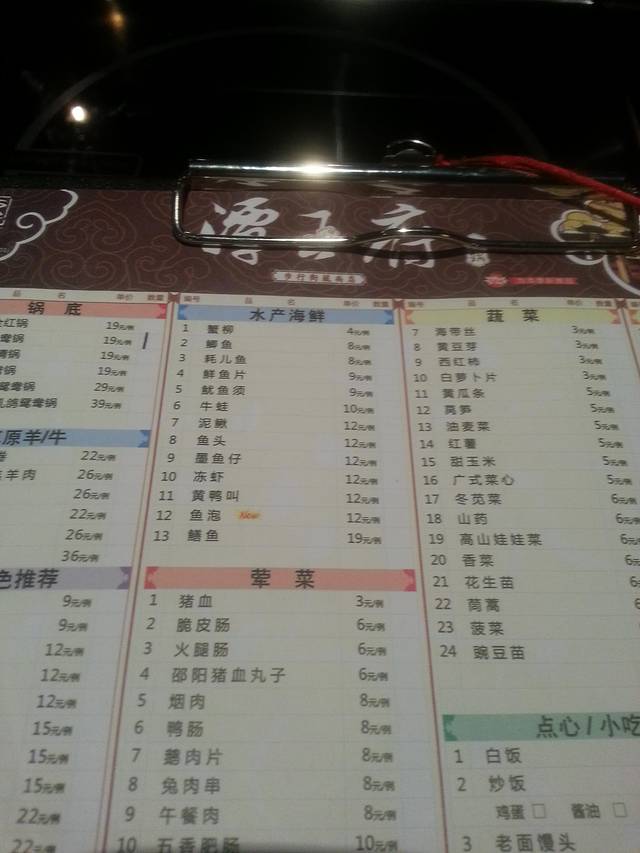 潭王府
步行街城南店
品 名 单价 数量
锅 底
红锅 19元/例
鸯锅 19元/例
清锅 19元/例
锅 19元/例
鸳鸯锅 29元/例
乳鸽鸳鸯锅 39元/例
原羊/牛
22元/例
羊肉 26元/例
26元/例
22元/例
26元/例
36元/例
色推荐
9元/例
9元/例
12元/例
12元/例
12元/例
15元/例
15元/例
15元/例
22元/例
22元/例
编号 品 名 单价 数量
水产海鲜
1 蟹柳 4元/例
2 鲫鱼 8元/例
3 耗儿鱼 8元/例
4 鲜鱼片 9元/例
5 鱿鱼须 9元/例
6 牛蛙 10元/例
7 泥鳅 12元/例
8 鱼头 12元/例
9 墨鱼仔 12元/例
10 冻虾 12元/例
11 黄鸭叫 12元/例
12 鱼泡 New 12元/例
13 鳝鱼 19元/例
荤 菜
1 猪血 3元/例
2 脆皮肠 6元/例
3 火腿肠 6元/例
4 邵阳猪血丸子 6元/例
5 烟肉 8元/例
6 鸭肠 8元/例
7 鹅肉片 8元/例
8 兔肉串 8元/例
9 午餐肉 8元/例
10 五香肥肠 10元/例
编号 品 名 单价 数量
蔬 菜
7 海带丝 3元/例
8 黄豆芽 3元/例
9 西红柿 3元/例
10 白萝卜片 3元/例
11 黄瓜条 5元/例
12 莴笋 5元/例
13 油麦菜 5元/例
14 红薯 5元/例
15 甜玉米 5元/例
16 广式菜心 5元/例
17 冬苋菜 6元/例
18 山药 6元/例
19 高山娃娃菜 6元/例
20 香菜 6元
21 花生苗 6元
22 茼蒿 6
23 菠菜 6
24 豌豆苗
点心/小吃
1 白饭
2 炒饭
鸡蛋 □ 酱油 □
3 老面馒头